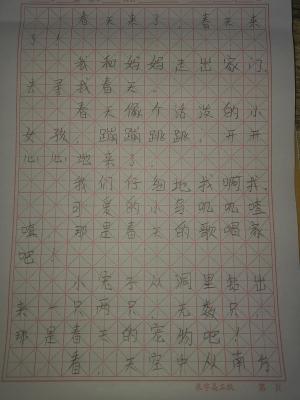 春天来了，春天来
了！
我和妈妈走出家门，
去寻找春天。
春天像个活泼的小
女孩，蹦蹦跳跳，开开
心心地来了。
我们仔细地找啊找，
可爱的小鸟叽叽喳
喳，那是春天的歌唱家
吧！
小兔子从洞里钻出
来一只两只，无数只，
那是春天的宠物吧！
看，天空中从南方